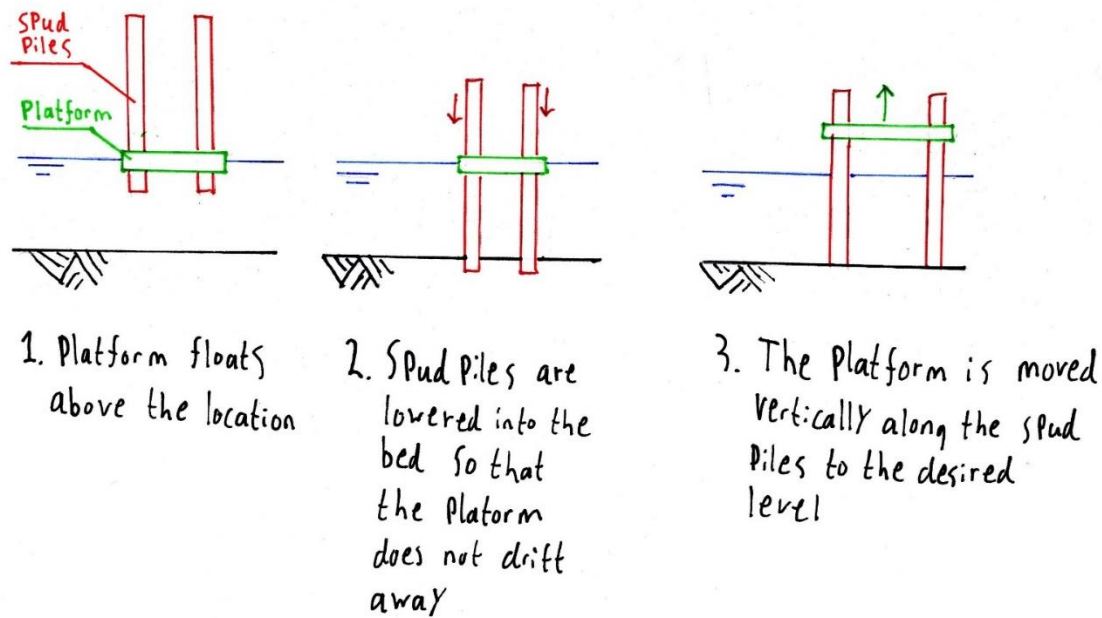 SPud
Piles
Platform
1. Platform floats
above the location
2. SPud Piles are
lowered into the
bed so that
the Platorm
does not drift
away
3. The Platform is moved
vertically along the spud
Piles to the desired
level